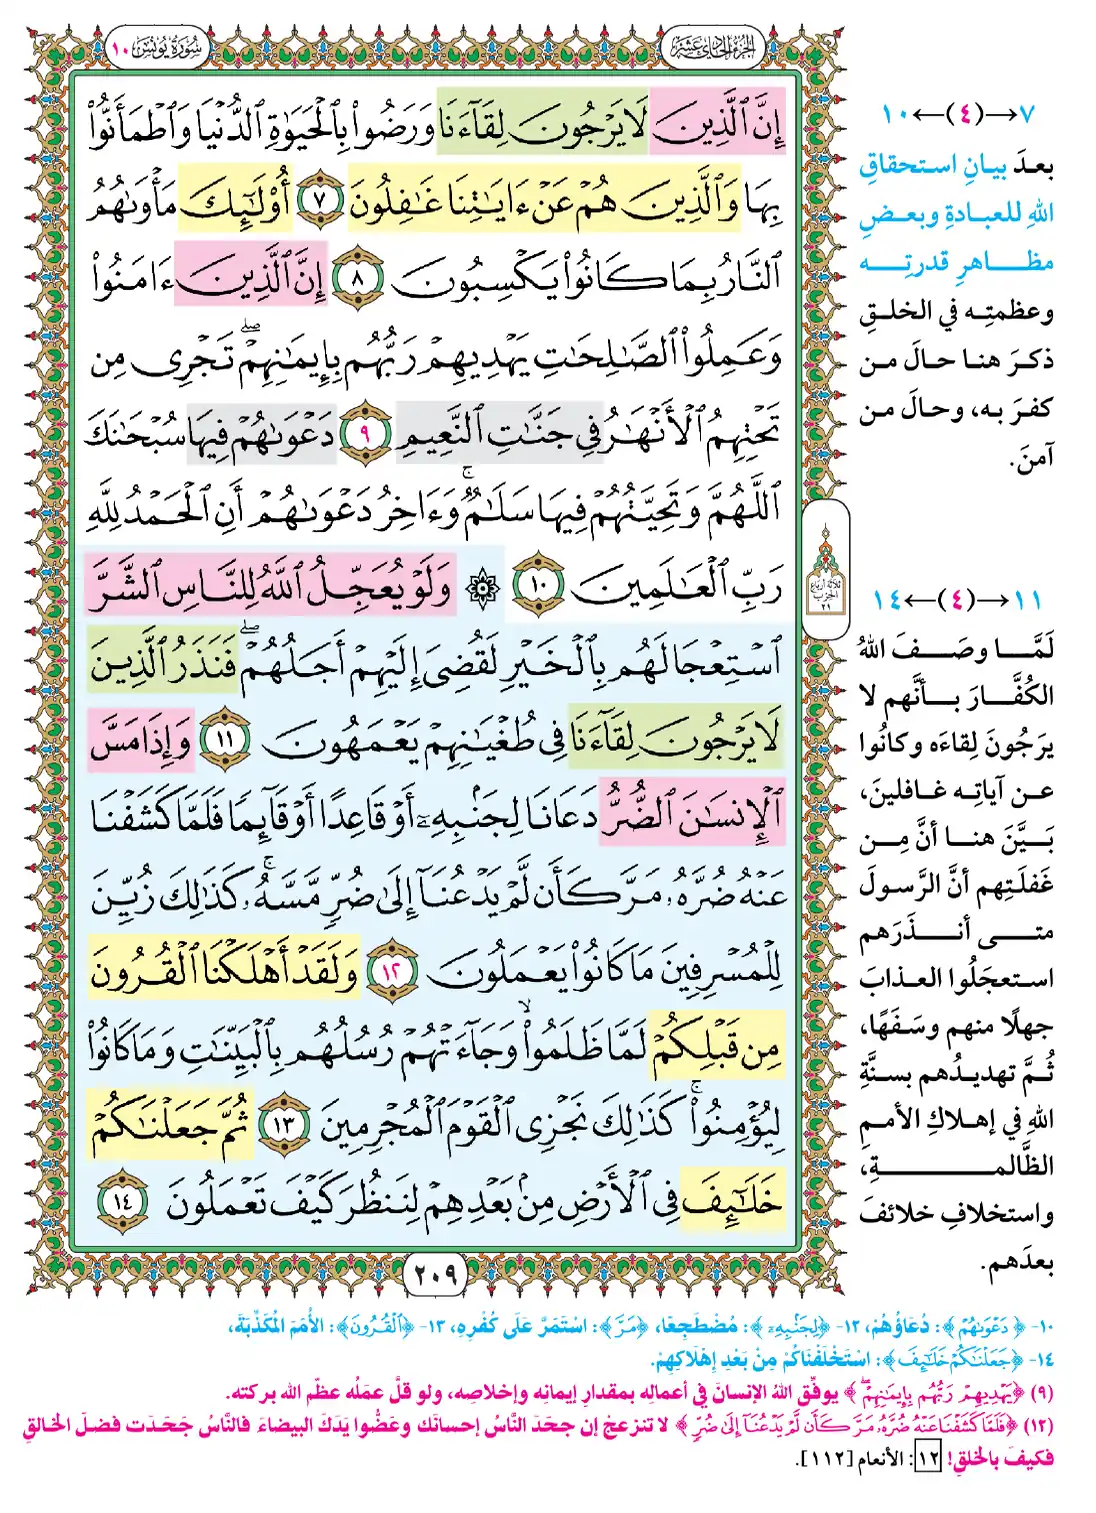 سُورَةُ يُونُسَ ١٠
الجُزْءُ الحَادِي عَشَرَ
إِنَّ ٱلَّذِينَ لَا يَرْجُونَ لِقَآءَنَا وَرَضُوا۟ بِٱلْحَيَوٰةِ ٱلدُّنْيَا وَٱطْمَأَنُّوا۟
بِهَا وَٱلَّذِينَ هُمْ عَنْ ءَايَـٰتِنَا غَـٰفِلُونَ ٧ أُو۟لَـٰٓئِكَ مَأْوَىٰهُمُ
ٱلنَّارُ بِمَا كَانُوا۟ يَكْسِبُونَ ٨ إِنَّ ٱلَّذِينَ ءَامَنُوا۟
وَعَمِلُوا۟ ٱلصَّـٰلِحَـٰتِ يَهْدِيهِمْ رَبُّهُم بِإِيمَـٰنِهِمْ ۖ تَجْرِى مِن
تَحْتِهِمُ ٱلْأَنْهَـٰرُ فِى جَنَّـٰتِ ٱلنَّعِيمِ ٩ دَعْوَىٰهُمْ فِيهَا سُبْحَـٰنَكَ
ٱللَّهُمَّ وَتَحِيَّتُهُمْ فِيهَا سَلَـٰمٌ ۚ وَءَاخِرُ دَعْوَىٰهُمْ أَنِ ٱلْحَمْدُ لِلَّهِ
رَبِّ ٱلْعَـٰلَمِينَ ١٠ ۞ وَلَوْ يُعَجِّلُ ٱللَّهُ لِلنَّاسِ ٱلشَّرَّ
ٱسْتِعْجَالَهُم بِٱلْخَيْرِ لَقُضِىَ إِلَيْهِمْ أَجَلُهُمْ ۖ فَنَذَرُ ٱلَّذِينَ
لَا يَرْجُونَ لِقَآءَنَا فِى طُغْيَـٰنِهِمْ يَعْمَهُونَ ١١ وَإِذَا مَسَّ
ٱلْإِنسَـٰنَ ٱلضُّرُّ دَعَانَا لِجَنۢبِهِۦٓ أَوْ قَاعِدًا أَوْ قَآئِمًا فَلَمَّا كَشَفْنَا
عَنْهُ ضُرَّهُۥ مَرَّ كَأَن لَّمْ يَدْعُنَآ إِلَىٰ ضُرٍّ مَّسَّهُۥ ۚ كَذَٰلِكَ زُيِّنَ
لِلْمُسْرِفِينَ مَا كَانُوا۟ يَعْمَلُونَ ١٢ وَلَقَدْ أَهْلَكْنَا ٱلْقُرُونَ
مِن قَبْلِكُمْ لَمَّا ظَلَمُوا۟ ۙ وَجَآءَتْهُمْ رُسُلُهُم بِٱلْبَيِّنَـٰتِ وَمَا كَانُوا۟
لِيُؤْمِنُوا۟ ۚ كَذَٰلِكَ نَجْزِى ٱلْقَوْمَ ٱلْمُجْرِمِينَ ١٣ ثُمَّ جَعَلْنَـٰكُمْ
خَلَـٰٓئِفَ فِى ٱلْأَرْضِ مِنۢ بَعْدِهِمْ لِنَنظُرَ كَيْفَ تَعْمَلُونَ ١٤
٢٠٩
٧→(٤)←١٠
بعدَ بيانِ استحقاقِ
اللهِ للعبادةِ وبعضِ
مظاهرِ قدرتِه
وعظمتِه في الخلقِ
ذكرَ هنا حالَ من
كفرَ به، وحالَ من
آمنَ.
ثلاثة أرباع
الحزب
٢١
١١→(٤)←١٤
لَمَّا وصَفَ اللهُ
الكُفَّارَ بأنَّهم لا
يرجُونَ لِقاءَه وكانُوا
عن آياتِه غافلينَ،
بَيَّنَ هنا أنَّ مِن
غَفلَتِهم أنَّ الرَّسولَ
متى أنذَرَهم
استعجَلُوا العذابَ
جهلًا منهم وسَفَهًا،
ثُمَّ تهديدُهم بسنَّةِ
اللهِ في إهلاكِ الأممِ
الظَّالمةِ،
واستخلافِ خلائفَ
بعدَهم.
١٠- ﴿دَعْوَىٰهُمْ﴾: دُعَاؤُهُمْ، ١٢- ﴿لِجَنۢبِهِۦٓ﴾: مُضْطَجِعًا، ﴿مَرَّ﴾: اسْتَمَرَّ عَلَى كُفْرِهِ، ١٣- ﴿ٱلْقُرُونَ﴾: الأُمَمَ المُكَذِّبَةَ،
١٤- ﴿جَعَلْنَـٰكُمْ خَلَـٰٓئِفَ﴾: اسْتَخْلَفْنَاكُمْ مِنْ بَعْدِ إِهْلَاكِهِمْ.
(٩) ﴿يَهْدِيهِمْ رَبُّهُم بِإِيمَـٰنِهِمْ ۖ﴾ يوفِّق اللهُ الإنسانَ في أعمالِه بمقدارِ إيمانِه وإخلاصِه، ولو قلَّ عمَلُه عظَّم الله بركته.
(١٢) ﴿فَلَمَّا كَشَفْنَا عَنْهُ ضُرَّهُۥ مَرَّ كَأَن لَّمْ يَدْعُنَآ إِلَىٰ ضُرٍّ﴾ لا تنزعجْ إن جحدَ النَّاسُ إحسانَك وعَضُّوا يَدَكَ البيضاءَ فالنَّاسُ جَحَدَت فضلَ الخالقِ
فكيفَ بالخلقِ! ١٢: الأنعام [١١٢].